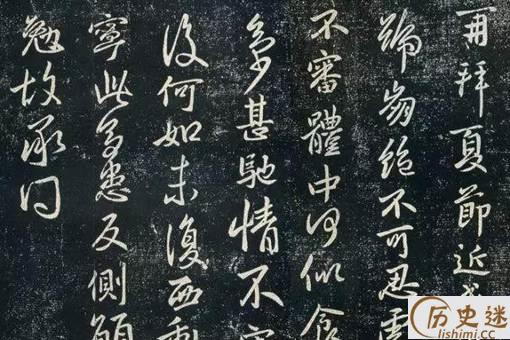 再拜夏節近
號崩絕不可忍
不審體中何似食
甚馳情不
後何如未復西
寧此多患反側
勉故承问
历史迷
lishimi.cc